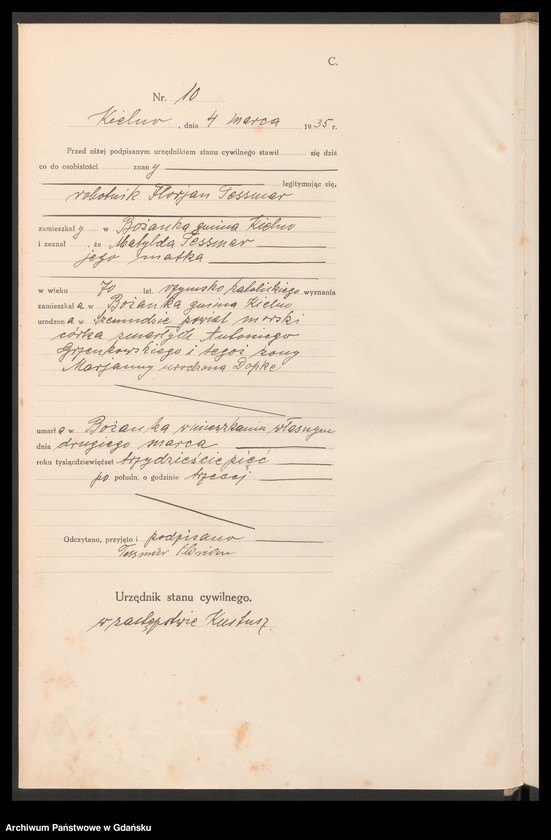 C.
Nr. 10
Kielno, dnia 4 marca 1935 r.
Przed niżej podpisanym urzędnikiem stanu cywilnego stawił się dziś
co do osobistości znany
legitymując się,
robotnik Florjan Tessmar
zamieszkały w Bożanka gmina Kielno
i zeznał, że Matylda Tessmar
jego matka
w wieku 70 lat, rzymsko katolickiego wyznania
zamieszkała w Bożanka gmina Kielno
urodzona w Szemudzie powiat morski
córka zmarłych Antoniego
Grzenkowskiego i tegoż żony
Marjanny urodzona Dopke
umarła w Bożanka w mieszkaniu własnym
dnia drugiego marca
roku tysiącdziewięćset trzydzieście pięć
po połudn. o godzinie trzeciej
Odczytano, przyjęto i podpisano
Urzędnik stanu cywilnego.
w zastępstwie Kustusz.
Archiwum Państwowe w Gdańsku